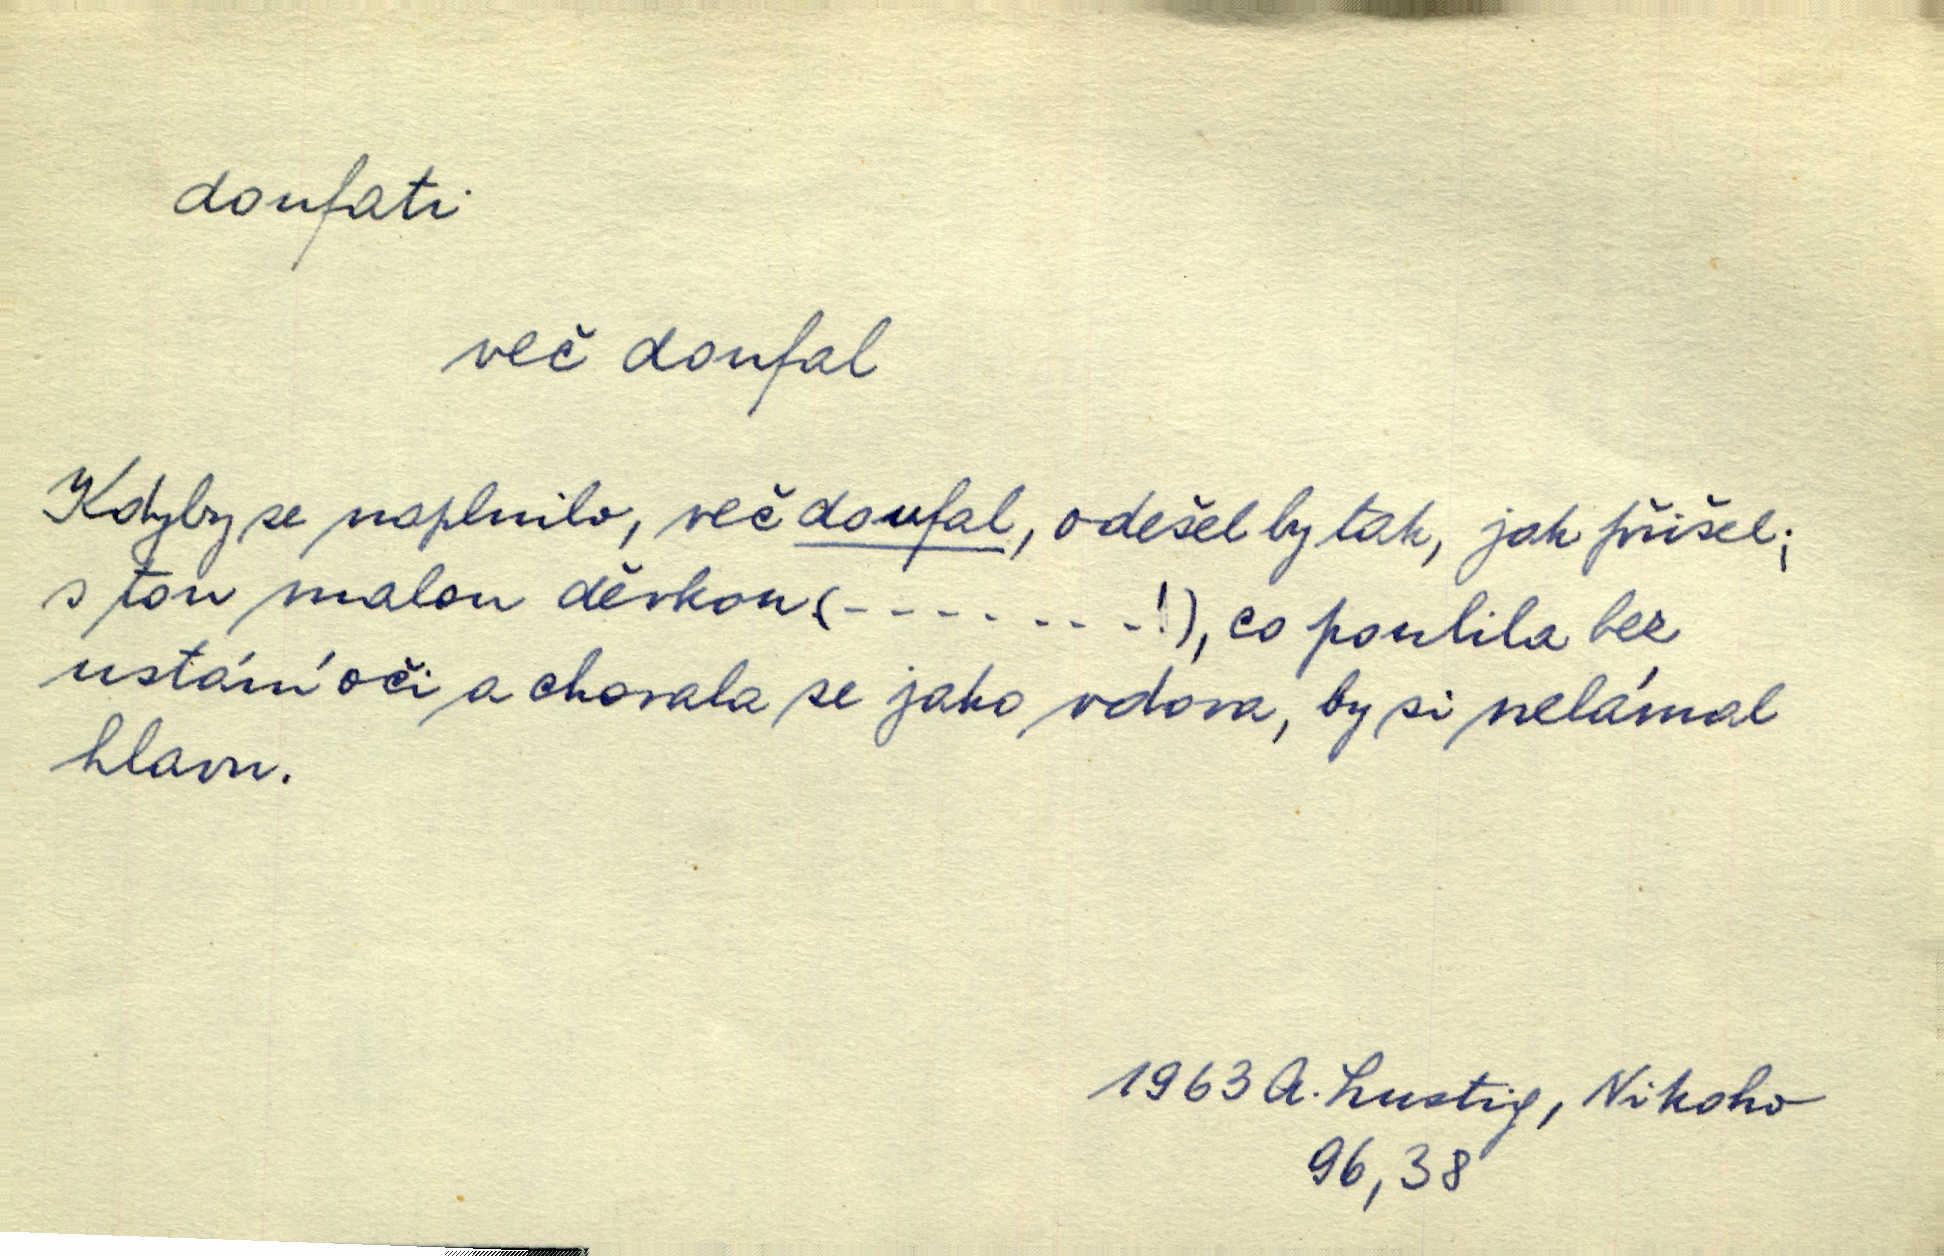 doufati
več doufal
Kdyby se naplnilo, več doufal, odešel by tak, jak přišel;
s tou malou děvkou (- - - - - - - !), co poulila bez
ustání oči a chovala se jako vdova, by si nelámal
hlavu.
1963 A. Lustig, Nikoho
96, 38